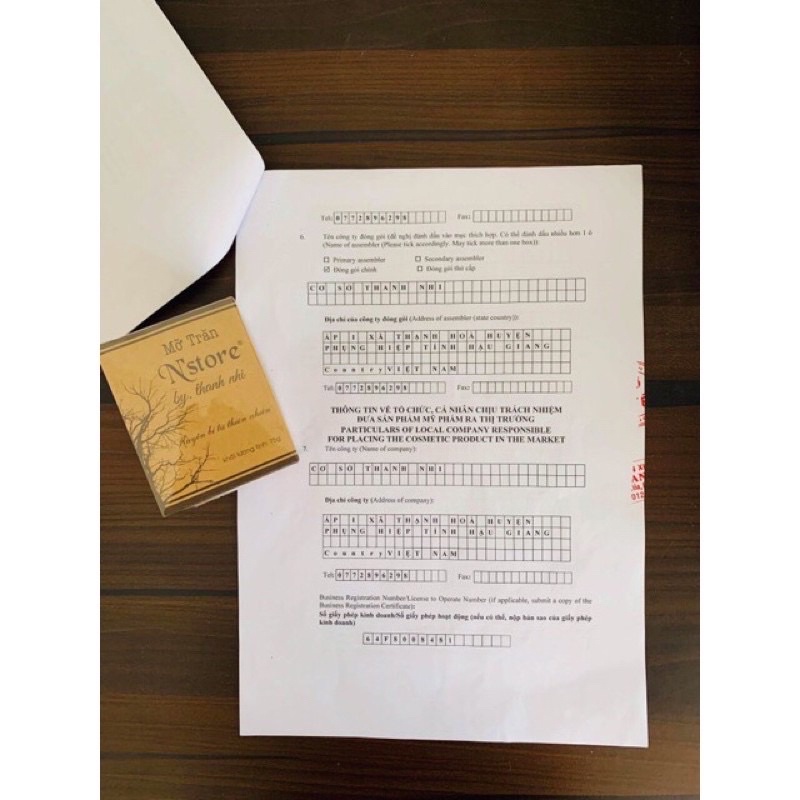 Mỡ Trăn
N'store®
by, thanh nhi
Huyền bí từ thiên nhiên
Khối lượng tịnh: 15g
Tel: 0772896298 Fax:
6. Tên công ty đóng gói (đề nghị đánh dấu vào mục thích hợp. Có thể đánh dấu nhiều hơn 1 ô
(Name of assembler (Please tick accordingly. May tick more than one box)):
☐ Primary assembler ☐ Secondary assembler
☑ Đóng gói chính ☐ Đóng gói thứ cấp
CƠ SỞ THANH NHI
Địa chỉ của công ty đóng gói (Address of assembler (state country)):
ẤP 1 XÃ THẠNH HOÀ HUYỆN
PHỤNG HIỆP TỈNH HẬU GIANG
Country VIỆT NAM
Tel: 0772896298 Fax:
THÔNG TIN VỀ TỔ CHỨC, CÁ NHÂN CHỊU TRÁCH NHIỆM
ĐƯA SẢN PHẨM MỸ PHẨM RA THỊ TRƯỜNG
PARTICULARS OF LOCAL COMPANY RESPONSIBLE
FOR PLACING THE COSMETIC PRODUCT IN THE MARKET
7. Tên công ty (Name of company):
CƠ SỞ THANH NHI
Địa chỉ công ty (Address of company):
ẤP 1 XÃ THẠNH HOÀ HUYỆN
PHỤNG HIỆP TỈNH HẬU GIANG
Country VIỆT NAM
Tel: 0772896298 Fax:
Business Registration Number/License to Operate Number (if applicable, submit a copy of the
Business Registration Certificate):
Số giấy phép kinh doanh/Số giấy phép hoạt động (nếu có thể, nộp bản sao của giấy phép
kinh doanh)
64F8008481